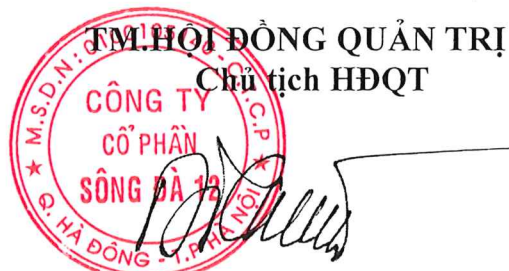 TM.HỘI ĐỒNG QUẢN TRỊ
Chủ tịch HĐQT
CÔNG TY
CỔ PHẦN
SÔNG ĐÀ 12
Q. HÀ ĐÔNG - T.P HÀ NỘI